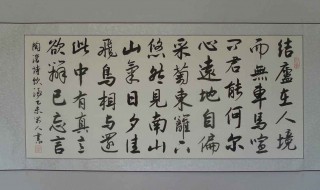 結廬在人境
而無車馬喧
問君能何爾
心遠地自偏
采菊東籬下
悠然見南山
山氣日夕佳
飛鳥相與還
此中有真意
欲辯已忘言
陶潛詩飲酒乙未人書